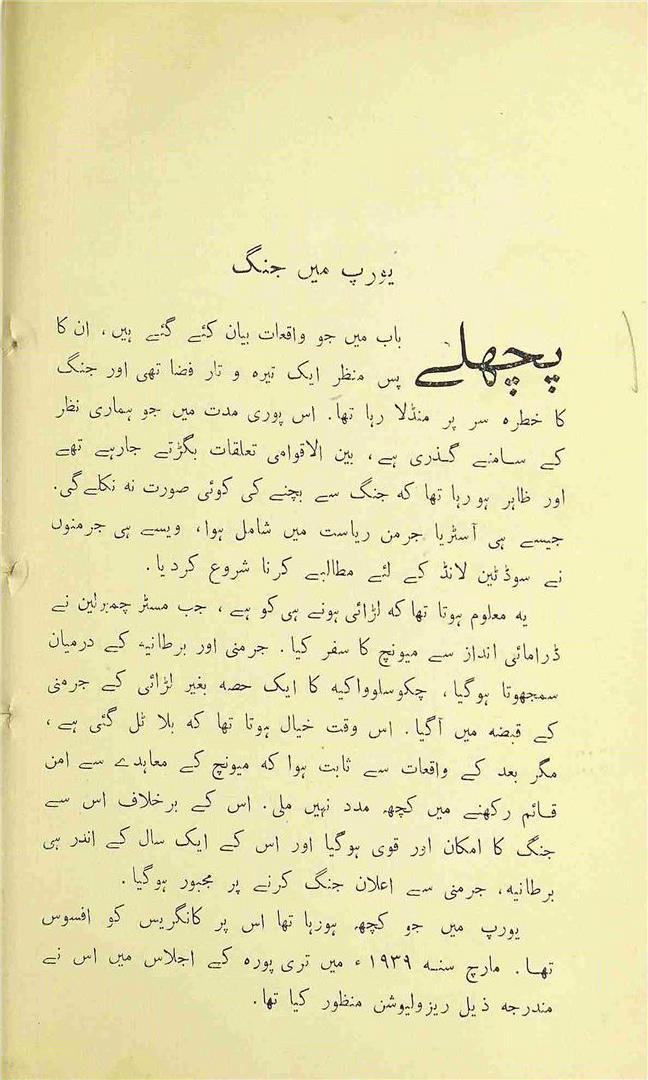 یورپ میں جنگ
پچھلے باب میں جو واقعات بیان کئے گئے ہیں، ان کا
پس منظر ایک تیرہ و تار فضا تھی اور جنگ
کا خطرہ سر پر منڈلا رہا تھا. اس پوری مدت میں جو ہماری نظر
کے سامنے گذری ہے، بین الاقوامی تعلقات بگڑتے جارہے تھے
اور ظاہر ہورہا تھا کہ جنگ سے بچنے کی کوئی صورت نہ نکلےگی.
جیسے ہی آسٹریا جرمن ریاست میں شامل ہوا، ویسے ہی جرمنوں
نے سوڈٹین لانڈ کے لئے مطالبے کرنا شروع کردیا.
یہ معلوم ہوتا تھا کہ لڑائی ہونے ہی کو ہے، جب مسٹر چمبرلین نے
ڈرامائی انداز سے میونچ کا سفر کیا. جرمنی اور برطانیہ کے درمیان
سمجھوتا ہوگیا، چکوسلوواکیہ کا ایک حصہ بغیر لڑائی کے جرمنی
کے قبضہ میں آگیا. اس وقت خیال ہوتا تھا کہ بلا ٹل گئی ہے،
مگر بعد کے واقعات سے ثابت ہوا کہ میونچ کے معاہدے سے امن
قائم رکھنے میں کچھ مدد نہیں ملی. اس کے برخلاف اس سے
جنگ کا امکان اور قوی ہوگیا اور اس کے ایک سال کے اندر ہی
برطانیہ، جرمنی سے اعلان جنگ کرنے پر مجبور ہوگیا.
یورپ میں جو کچھ ہورہا تھا اس پر کانگریس کو افسوس
تھا. مارچ سنہ ۱۹۳۹ء میں تری پورہ کے اجلاس میں اس نے
مندرجہ ذیل ریزولیوشن منظور کیا تھا.